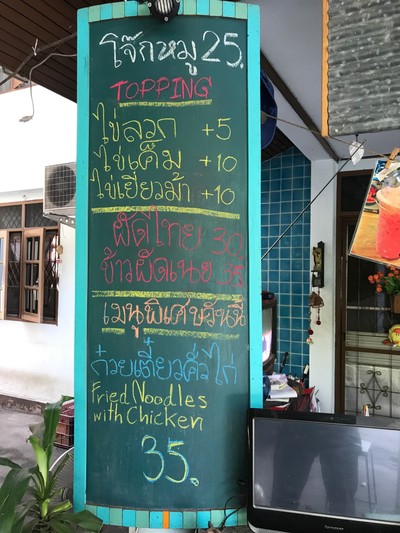 โจ๊กหมู 25.
TOPPING
ไข่ลวก +5
ไข่เค็ม +10
ไข่เยียวม้า +10
ผัดไทย 30
ข้าวผัดเนย 35
เมนูพิเศษวันนี้
ก๋วยเตี๋ยวคั่วไก่
Fried Noodles
with Chicken
35.